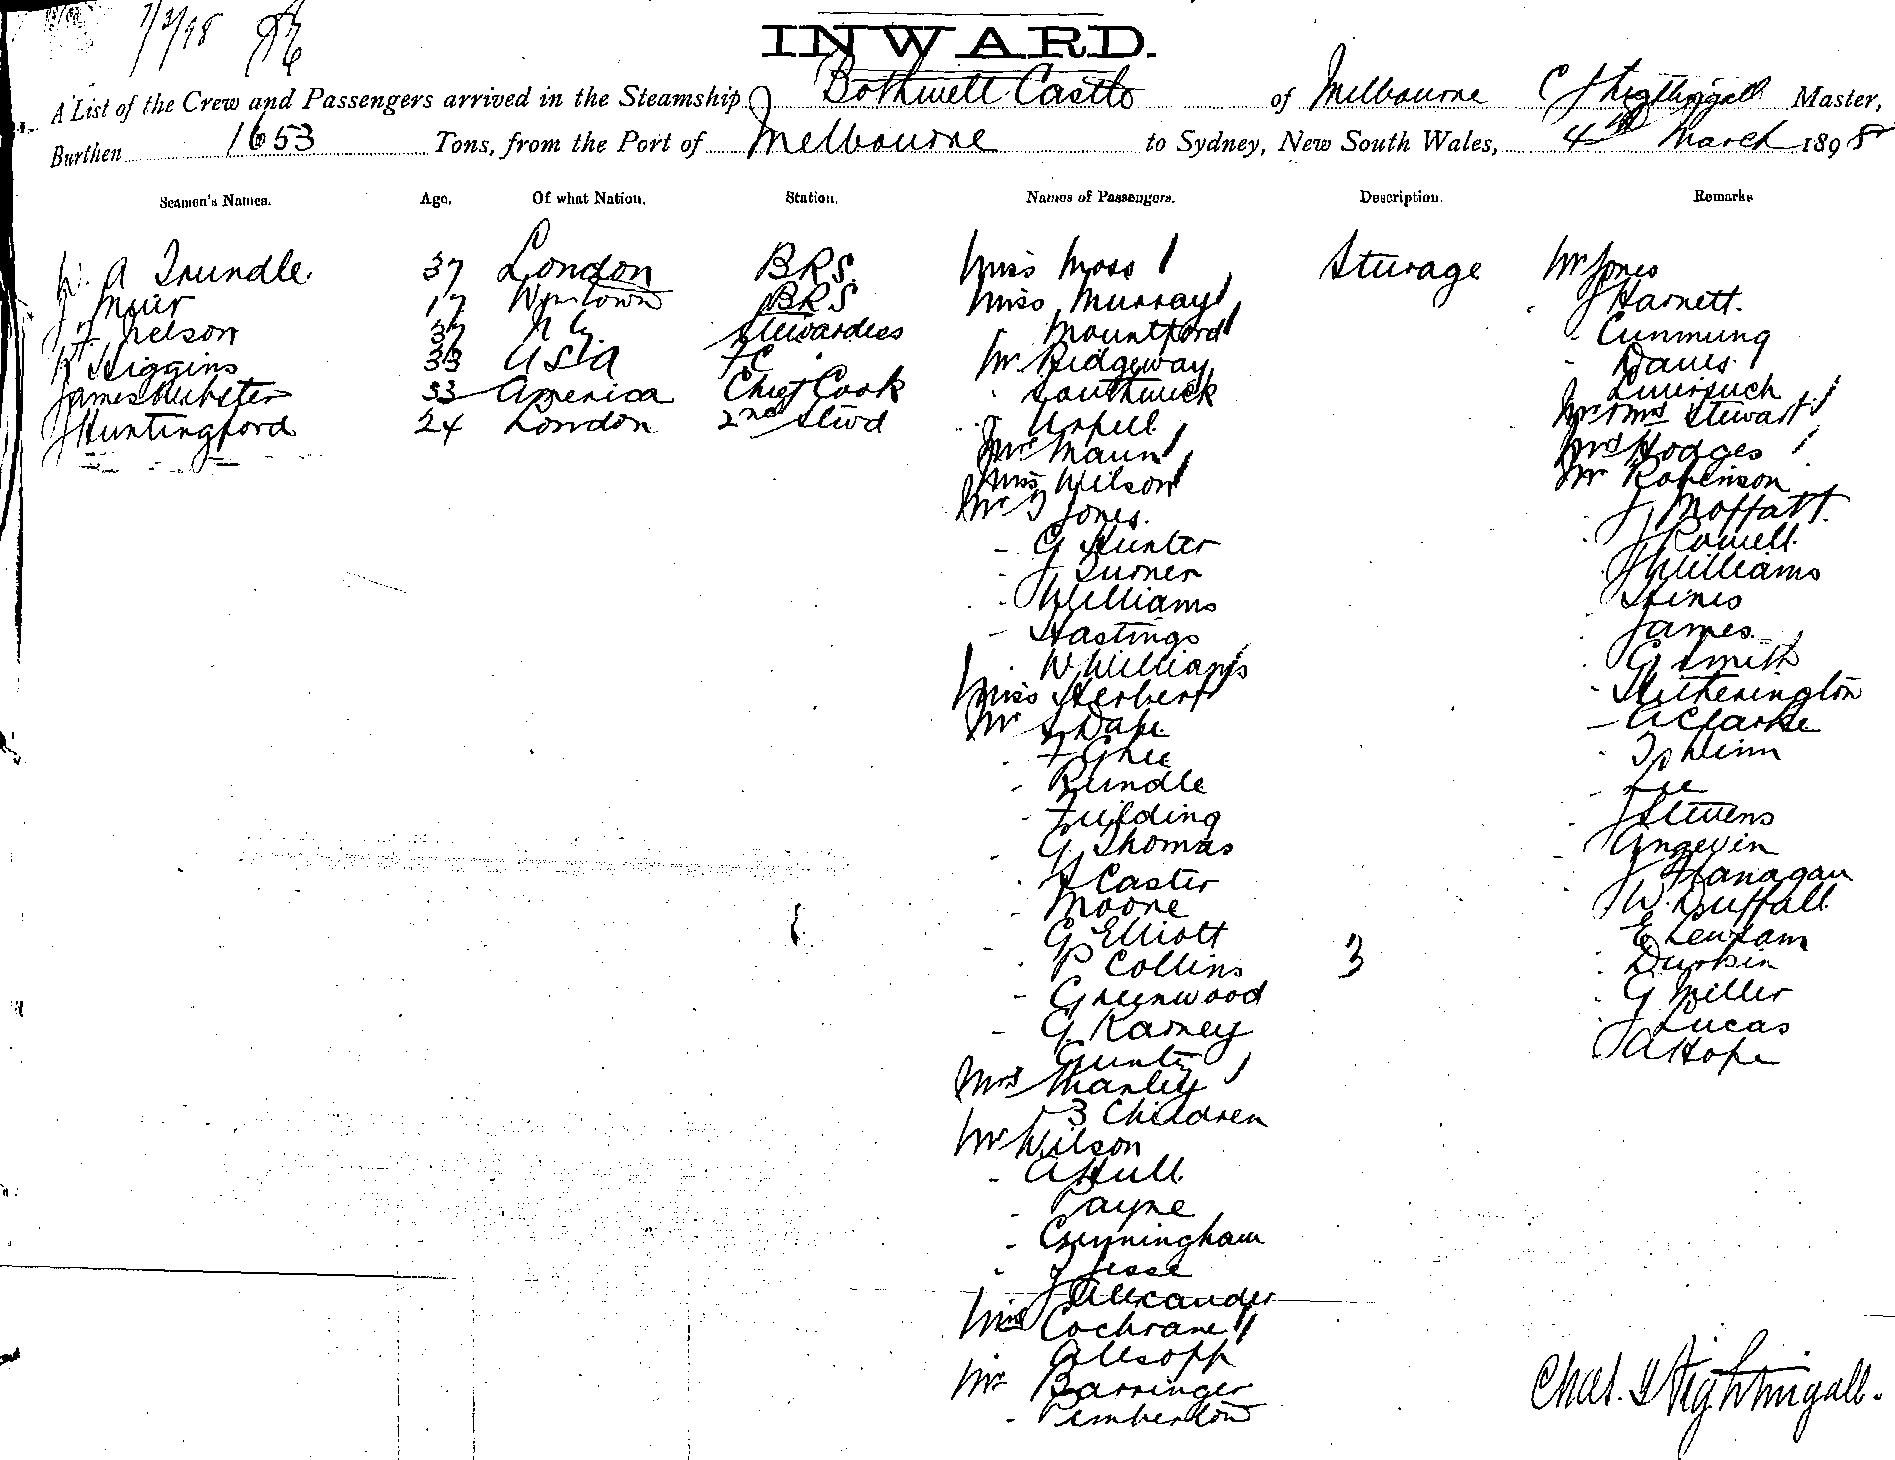 7/3/98
INWARD.
A List of the Crew and Passengers arrived in the Steamship Bothwell Castle of Melbourne C J Nightingall Master,
Burthen 1653 Tons, from the Port of Melbourne to Sydney, New South Wales, 4th March 1898
Seamen's Names. Age. Of what Nation. Station. Names of Passengers. Description. Remarks
A Trundle 37 London BRS
J Muir 17 BRS
Nelson 37 Stewardess
R Higgins 33 Asia
James Webster 33 America Chief Cook
J Huntingford 24 London 2nd Stwd
Miss Moss Sturage
Miss Murray
Mountford
Mr Ridgeway
Southwick
Mrs Maun
Miss Wilson
Mr J Jones
- G Hunter
- J Turner
- Williams
- Hastings
W Williams
Miss Herbert
Mr
Rundle
- Fuilding
- G Thomas
Caster
- Moore
- G Elliott
- P Collins 3
- Greenwood
- G Karney
Mrs Manley
3 Children
Mr Wilson
- A Hull
- Payne
- Cunningham
- J Jesse
Alexander
Cochrane
Allsopp
Mr Barringer
- Pemberton
Mr Jones
J Harnett
Cumming
- Davis
Mr & Mrs Stewart
Mrs Hodges
Mr Robinson
J Moffatt
J Powell
J Williams
Hines
James
G Smith
- Hitherington
- A Clarke
- Lee
J Stevens
Angevin
J Flanagan
W. Duffall
Durkin
G Miller
J Lucas
A Hope
Chas. J Nightingall.